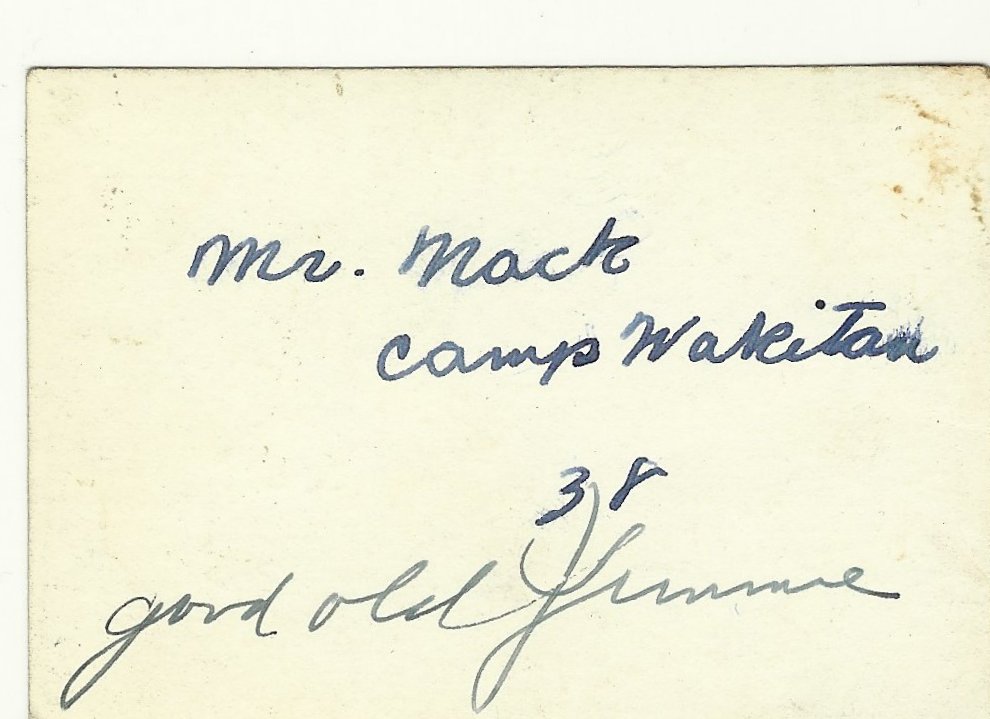 Mr. Mack
Camp Wakitan
38
good old Jimmie